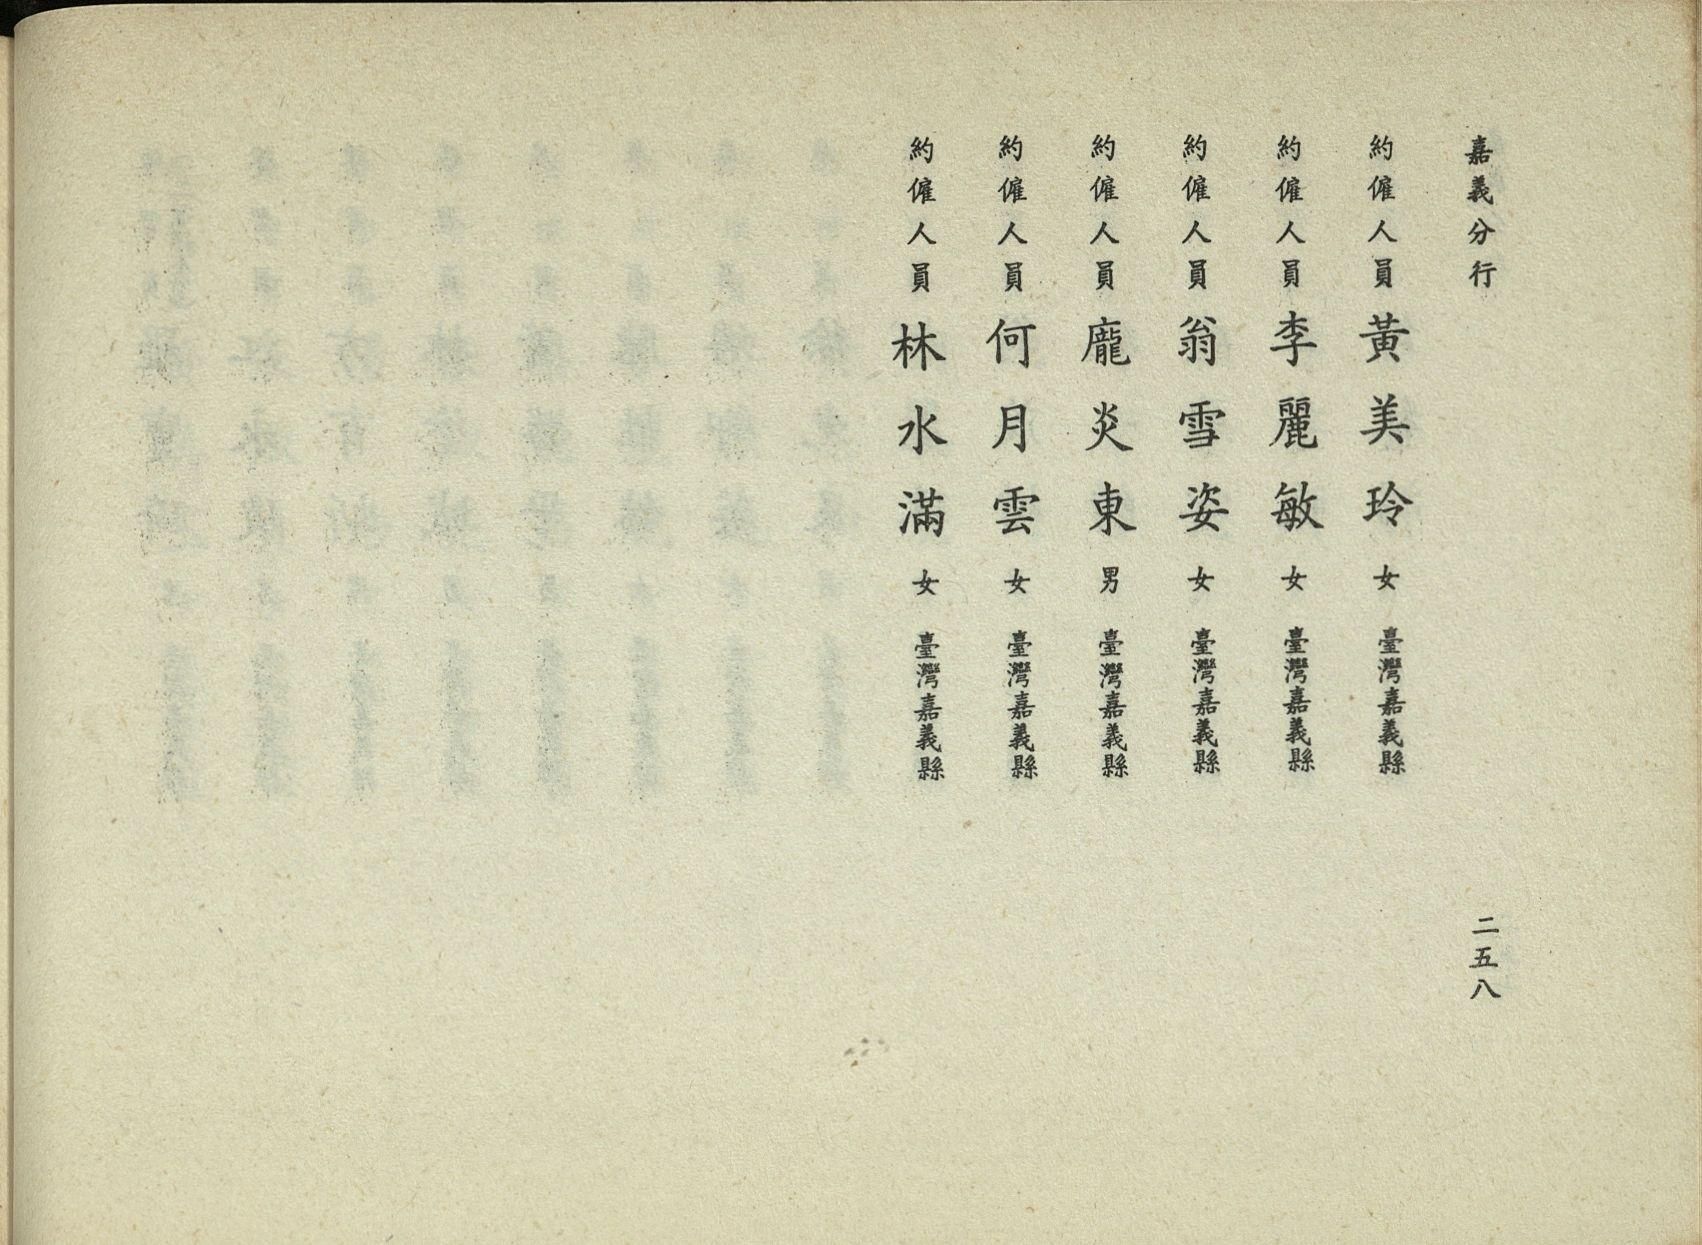 嘉義分行 二五八
約僱人員 黃美玲 女 臺灣嘉義縣
約僱人員 李麗敏 女 臺灣嘉義縣
約僱人員 翁雪姿 女 臺灣嘉義縣
約僱人員 龐炎東 男 臺灣嘉義縣
約僱人員 何月雲 女 臺灣嘉義縣
約僱人員 林水滿 女 臺灣嘉義縣